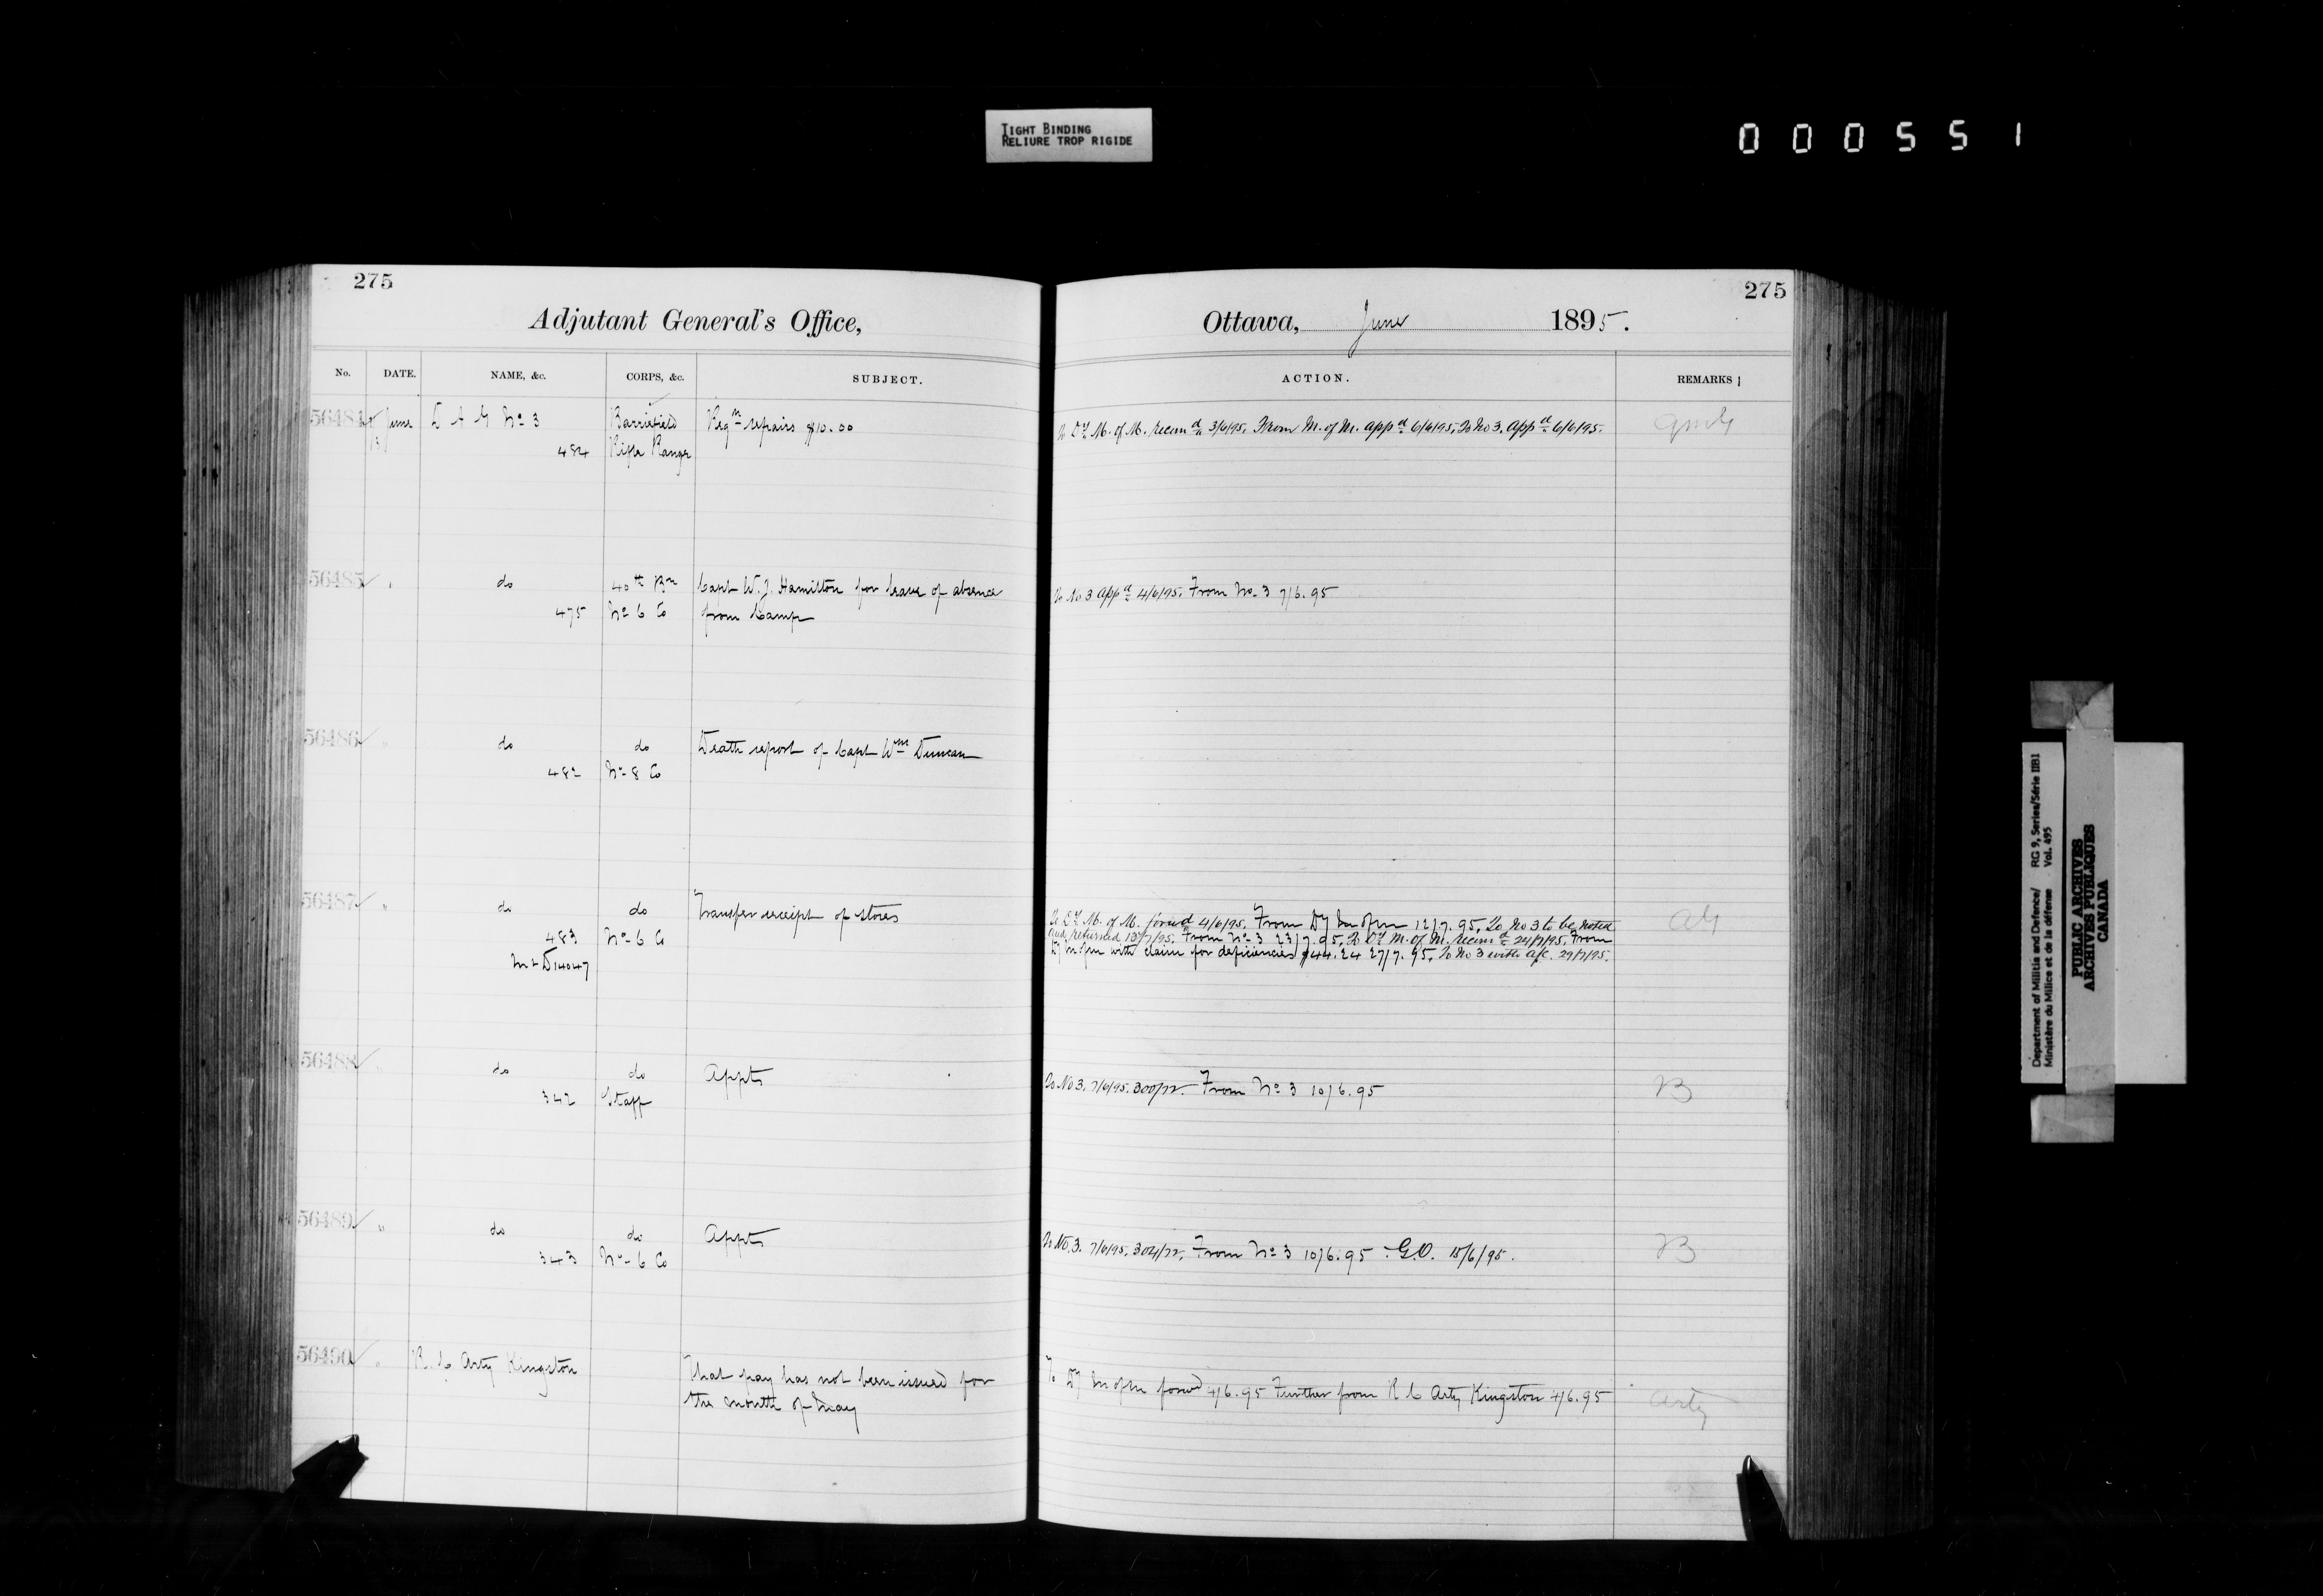 TIGHT BINDING
RELIURE TROP RIGIDE
000551
275
Adjutant General's Office,
No. DATE. NAME, &c. CORPS, &c. SUBJECT.
56484 June D A G No 3 Barriefield Reqn repairs $10.00
3 484 Rifle Range
56485 " do 40th Bn Capt W. J. Hamilton for leave of absence
475 No 6 Co from Camp
56486 " do do Death report of Capt Wm Duncan
482 No 8 Co
56487 " do do Transfer receipt of stores
483 No 6 Co
M & D 14047
56488 " do do Appts
342 Staff
56489 " do do Appts
343 No 6 Co
56490 " R. C. Arty Kingston That pay has not been issued for
the month of May
275
Ottawa, June 1895.
ACTION. REMARKS
To Dy M. of M. recomd 3/6/95. From M. of M. appd 6/6/95. To No 3. appd 6/6/95. QMG
To No 3 appd 4/6/95. From No. 3 7/6.95
To Dy M. of M. forwd 4/6/95. From Dy M of M 12/7.95. To No 3 to be noted AG
and returned 15/7/95. From No 3 23/7.95. To Dy M. of M. recomd 24/7/95. From
Dy M of M with claim for deficiencies $44.24 27/7.95. To No 3 with a/c. 29/7/95.
To No 3. 7/6/95. From No 3 10/6.95 B
To No. 3. 7/6/95. From No 3 10/6.95 G.O. 15/6/95. B
To Dy M of M forwd 4/6.95 Further from R C Arty Kingston 4/6.95 Arty
Department of Militia and Defence/ RG 9, Series/Série IIB1
Ministère du Milice et de la défense Vol. 495
PUBLIC ARCHIVES
ARCHIVES PUBLIQUES
CANADA